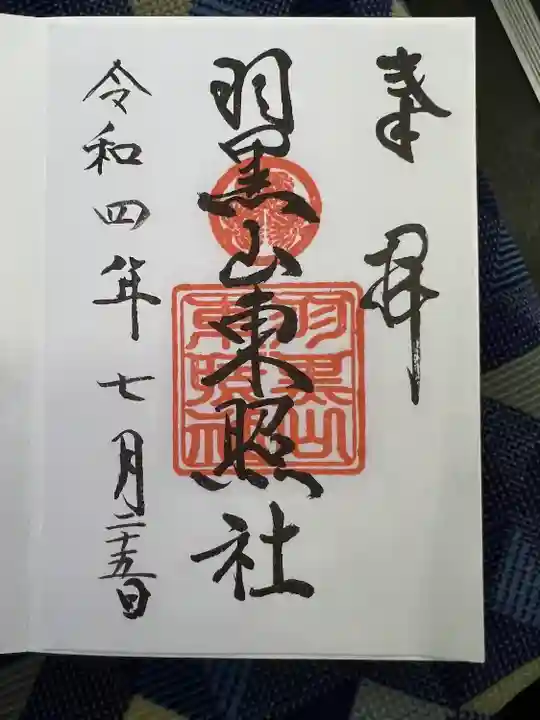 奉拝
羽黒山東照社
羽黒山
東照社
令和四年七月二十五日